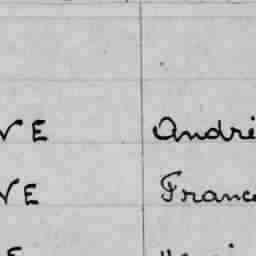 VE Andri
VE France